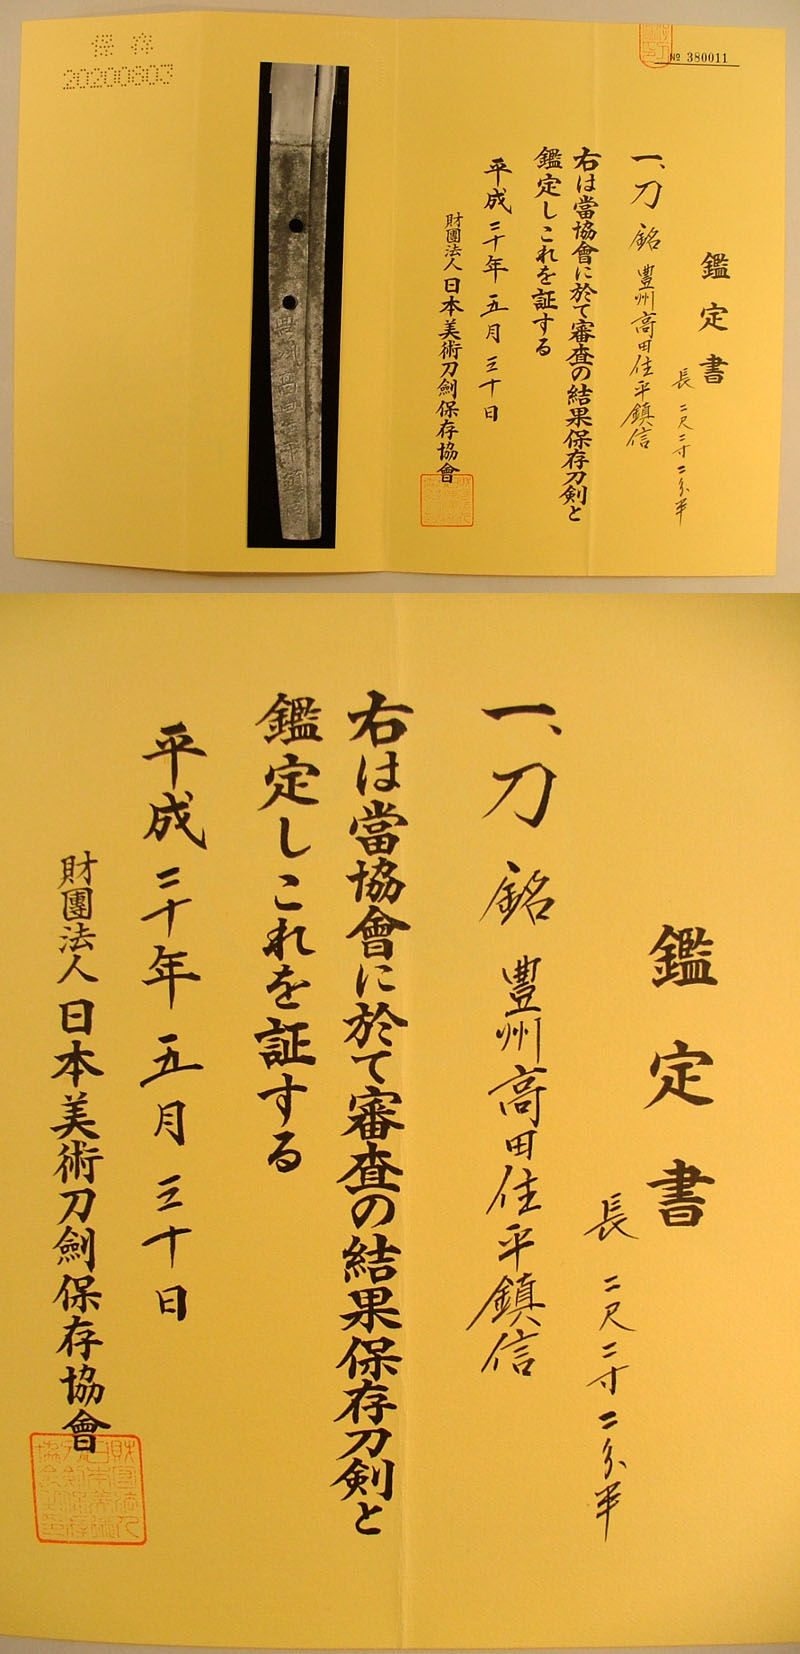 保存
20200803
№ 380011
鑑定書
長 二尺二寸二分半
一、刀 銘 豊州高田住平鎮信
右は當協會に於て審査の結果保存刀剣と
鑑定しこれを証する
平成二十年五月三十日
財團法人日本美術刀劍保存協會
鑑定書
長 二尺二寸二分半
一、刀 銘 豊州高田住平鎮信
右は當協會に於て審査の結果保存刀剣と
鑑定しこれを証する
平成二十年五月三十日
財團法人日本美術刀劍保存協會